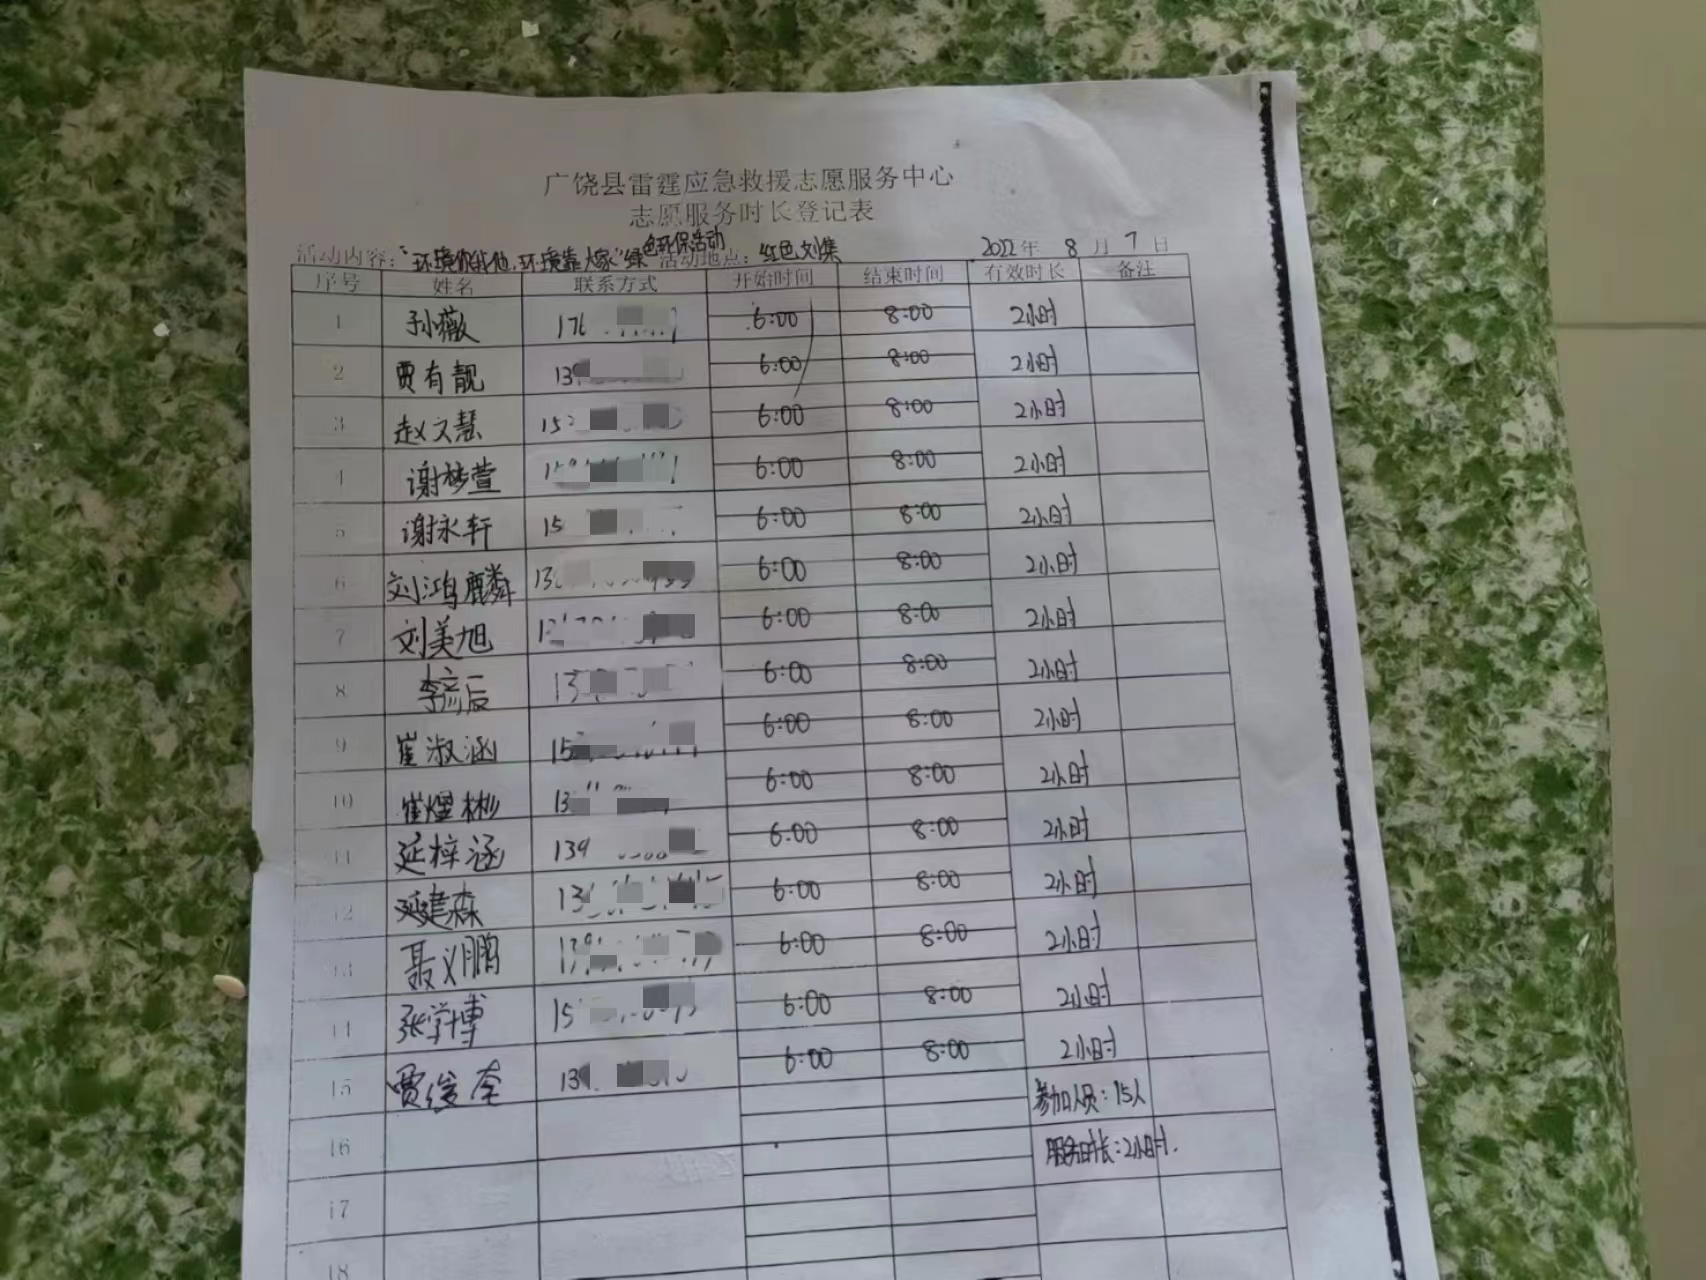 广饶县雷霆应急救援志愿服务中心
志愿服务时长登记表
活动内容："环境你我他,环境靠大家"绿色环保活动 活动地点：红色刘集 2022年 8月 7日
序号 姓名 联系方式 开始时间 结束时间 有效时长 备注
1 孙薇 176 6:00 8:00 2小时
2 贾有靓 139 6:00 8:00 2小时
3 赵文慧 152 6:00 8:00 2小时
4 谢梦萱 6:00 8:00 2小时
5 谢永轩 15 6:00 8:00 2小时
6 刘鸿麟 13 6:00 8:00 2小时
7 刘美旭 6:00 8:00 2小时
8 李彦辰 13 6:00 8:00 2小时
9 崔淑涵 15 6:00 8:00 2小时
10 崔煜彬 13 6:00 8:00 2小时
11 延梓涵 139 6:00 8:00 2小时
12 延建森 13 6:00 8:00 2小时
13 聂义鹏 139 6:00 8:00 2小时
14 张学博 15 6:00 8:00 2小时
15 贾俊奎 13 6:00 8:00 2小时
参加人员：15人
16 服务时长：2小时.
17
18